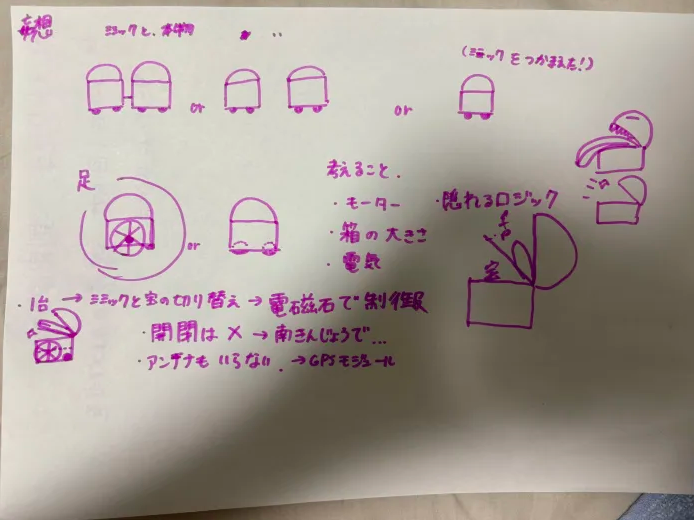 妄想
ミミックと、本物
(ミミックをつかまえた!)
or
or
足
or
考えること.
・モーター
・箱の大きさ
・電気
・隠れるロジック
宝
・1台 → ミミックと宝の切り替え → 電磁石で制御
・開閉は × →
・アンテナもいらない. → GPSモジュール